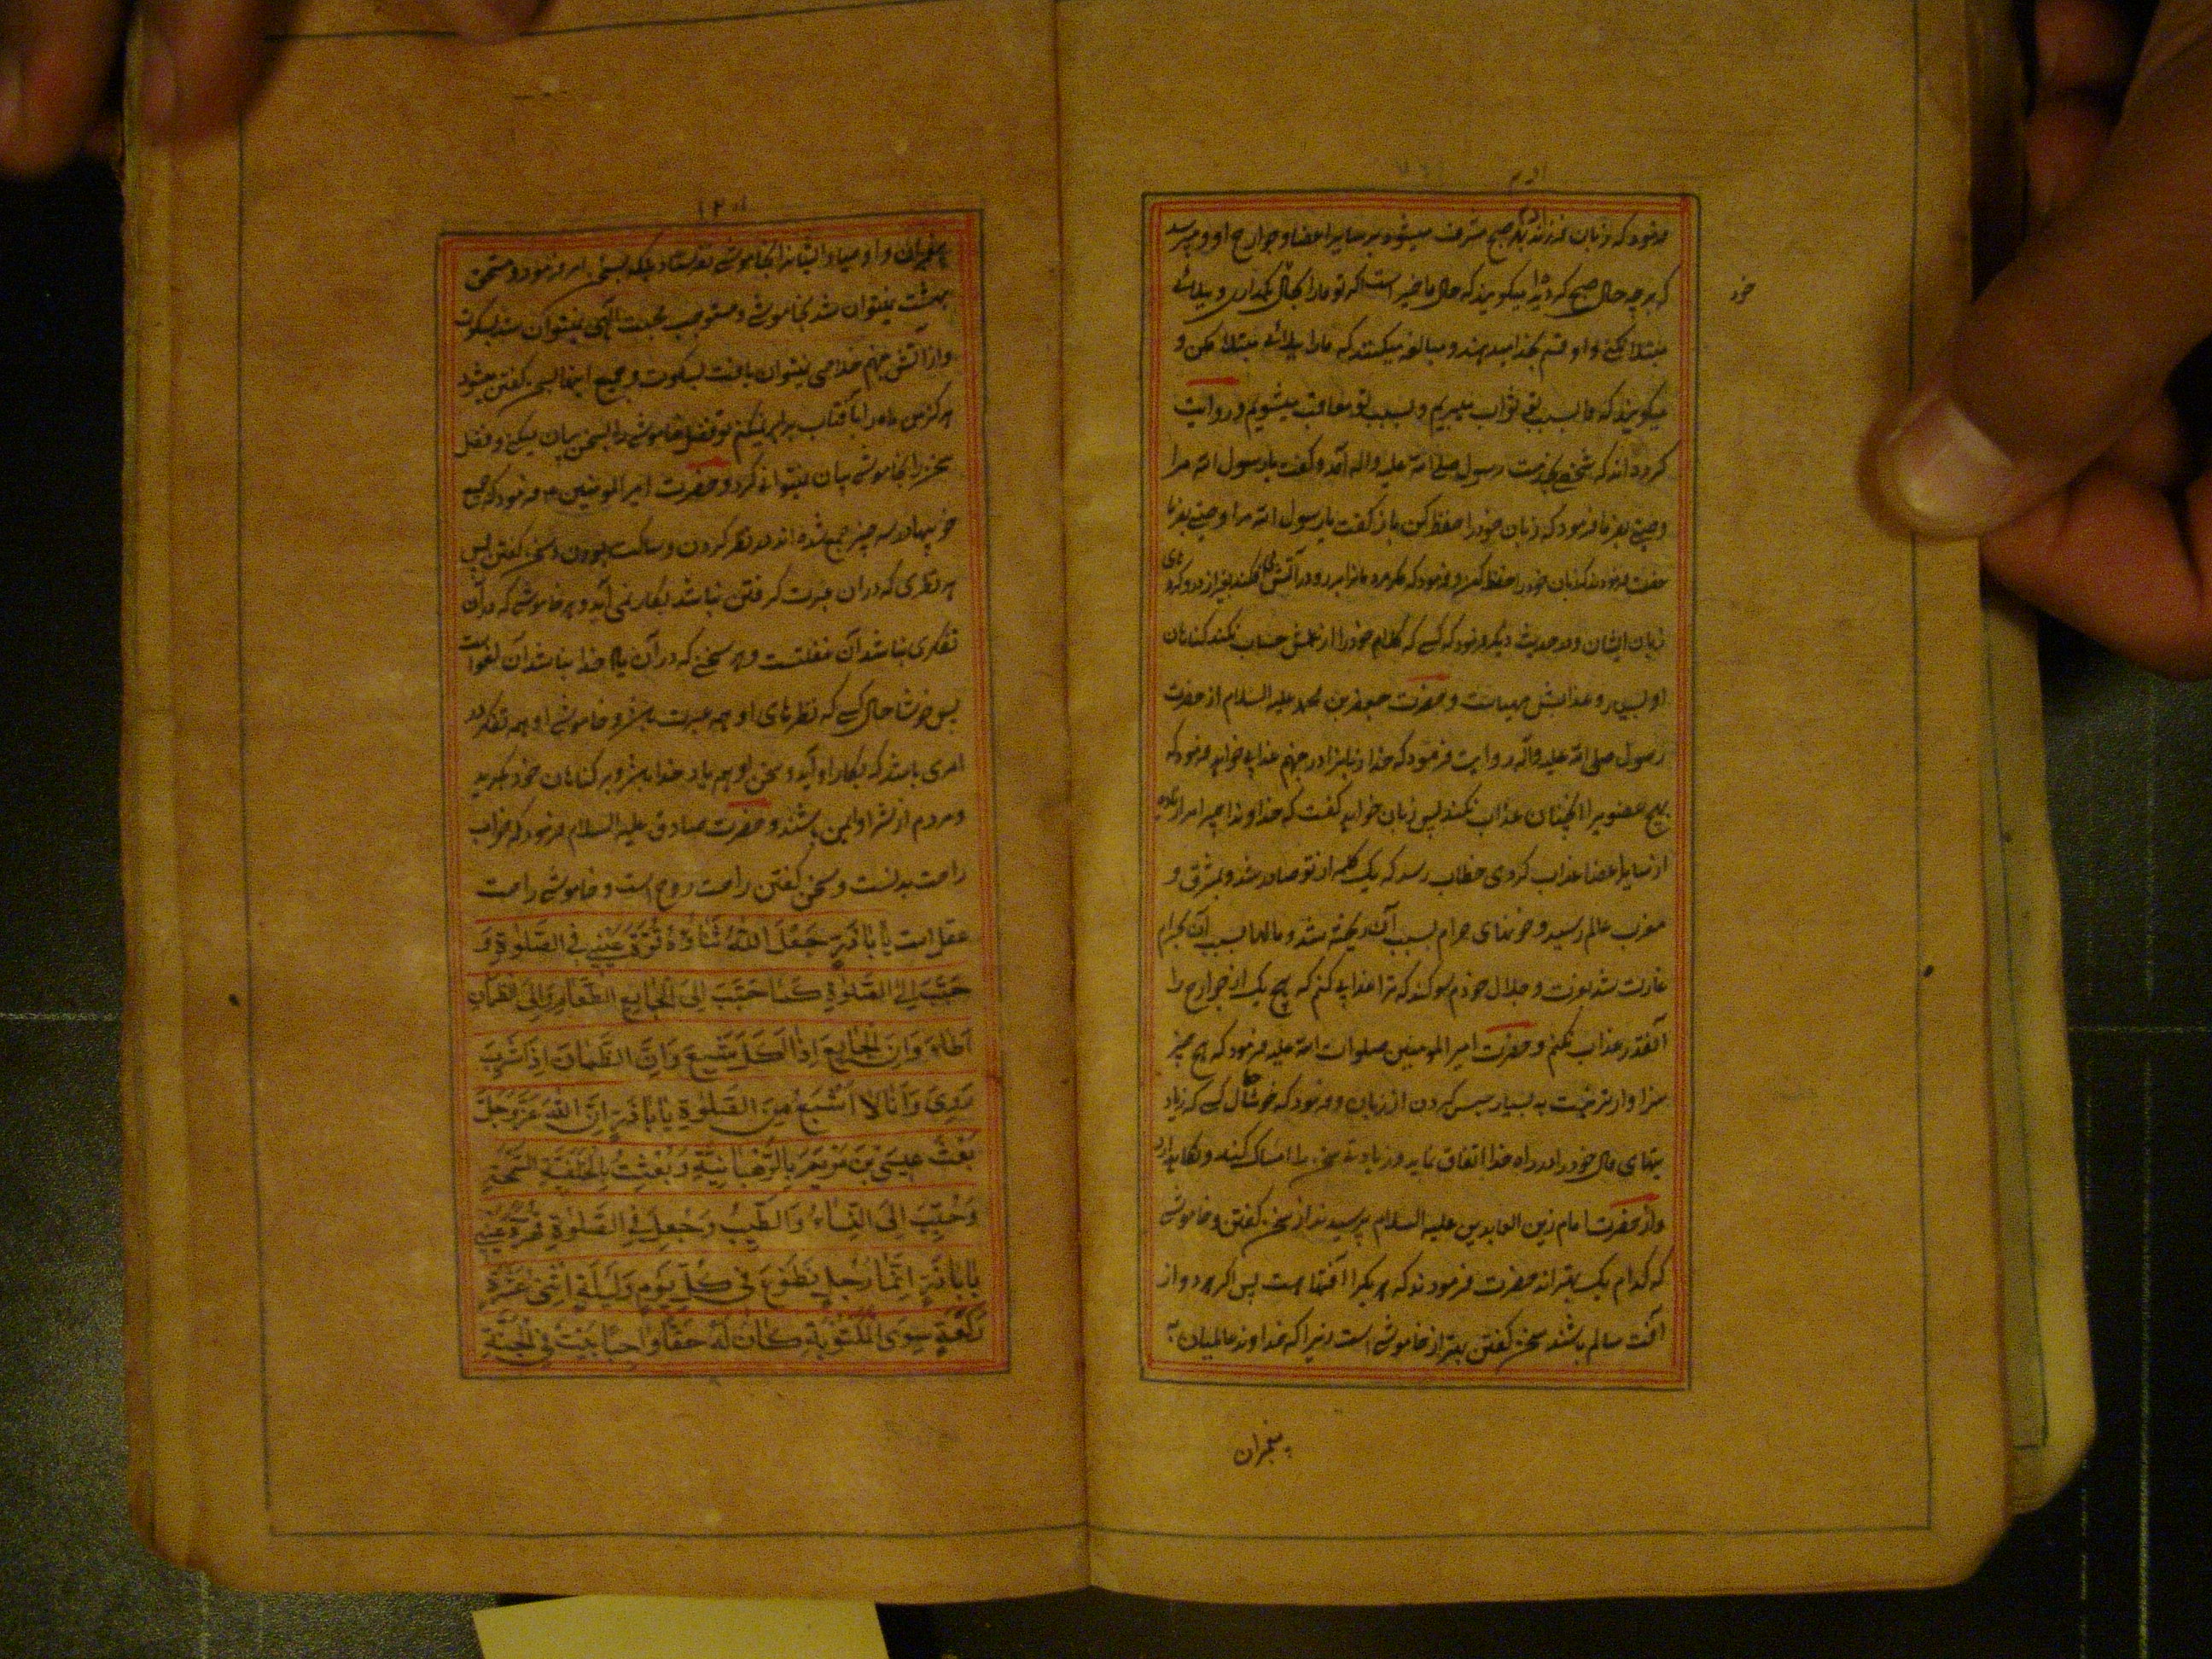 فرمود که زبان فرزند آدم هر صبح مشرف میشود بر سایر اعضا و جوارح او و میپرسد
که بر چه حال صبح کردید ایشان میگویند که حال ما خیر است اگر تو ما را بحال خود بگذاری و ببلائی
خود
مبتلا نکنی و او را قسم بخدا میدهند و مبالغه میکنند که ما را ببلائی مبتلا مکن و
میگویند که ما بسبب تو ثواب میبریم و بسبب تو معاقب میشویم و روایت
کرده اند که شخصی بخدمت رسول صلی الله علیه و اله آمد و گفت یا رسول الله مرا
وصیتی بفرما فرمود که زبان خود را حفظ کن باز گفت یا رسول الله مرا وصیتی بفرما
حضرت فرمودند که زبان خود را حفظ کن و فرمود که مگر مردمان را بر رو در آتش می افکند بغیر از درو کرده های
زبان ایشان و در حدیث دیگر فرمود که کسی که کلام خود را از عملش حساب نکند گناهان
او بسیار و عذابش مهیاست و حضرت جعفر بن محمد علیه السلام از حضرت
رسول صلی الله علیه و آله روایت فرمود که خدا زبانرا در جهنم عذابی خواهد فرمود که
هیچ عضویرا آنچنان عذاب نکند پس زبان خواهد گفت که خداوندا چرا مرا زیاده
از سایر اعضا عذاب کردی خطاب رسد که یک کلمه از تو صادر شد و بمشرق و
مغرب عالم رسید و خونهای حرام بسبب آن ریخته شد و مالها بسبب آن بحرام
غارت شد بعزت و جلال خودم سوگند که ترا عذابی کنم که هیچ یک از جوارح را
آنقدر عذاب نکنم و حضرت امیر المومنین صلوات الله علیه فرمود که هیچ چیز
سزاوارتر نیست به بسیار حبس کردن از زبان و فرمود که خوشا حال کسی که زیاد
یتهای مال خود را در راه خدا انفاق نماید و زیادتی سخن را امساک کند و نگاهدارد
و از حضرت امام زین العابدین علیه السلام پرسیدند از سخن گفتن و خاموشی
که کدام یک بهتراند حضرت فرمودند که هر یک را آفتها هست پس اگر هر دو از
آفت سالم باشند سخن گفتن بهتر از خاموشی است زیرا که خداوند عالمیان
پیغمبران
پیغمبران و اوصیاء ایشانرا بخاموشی نفرستاد بلکه بسخن امر فرمود و مستحق
بهشت نمیتوان شد بخاموشی و مستوجب محبت الهی نمیتوان شد بسکوت
و از آتش جهنم خلاصی نمیتوان یافت بسکوت و جمیع اینها بسخن گفتن میشود
هرگز من ماه را با آفتاب برابر نمیکنم تو فضل خاموشی را بسخن بیان میکنی و فضل
سخن را بخاموشی بیان نمیتوانی کرد و حضرت امیر المومنین ع فرمود که جمیع
خوبیها در سه چیز جمع شده اند در نظر کردن و ساکت بودن و سخن گفتن پس
هر نظری که در آن عبرت گرفتن نباشد بکار نمی آید و هر خاموشی که در آن
تفکری نباشد آن غفلتست و هر سخنی که در آن یاد خدا نباشد آن لغو است
پس خوشا حال کسی که نظرهای او همه عبرت باشد و خاموشی او همه تفکر در
امری باشد که بکار او آید و سخن او همه یاد خدا باشد و بر گناهان خود بگرید
و مردم از شر او ایمن باشند و حضرت صادق علیه السلام فرمود که خواب
راحت بدنست و سخن گفتن راحت روح است و خاموشی راحت
عقل است یا بَا ذَرٍّ جَعَلَ اللّٰهُ ثَناؤُهُ قُرَّةَ عَیْنِی فِی الصَّلٰوةِ وَ
حَبَّبَ اِلَیَّ الصَّلٰوةَ کَمَا حَبَّبَ اِلَی الْجَایِعِ الطَّعَامَ وَ اِلَی الظَّمْاٰنِ
الْمَاءَ وَ اِنَّ الْجَایِعَ اِذَا اَکَلَ شَبِعَ وَ اِنَّ الظَّمْاٰنَ اِذَا شَرِبَ
رَوِیَ وَ اَنَا لَا اَشْبَعُ مِنَ الصَّلٰوةِ یَا بَا ذَرٍّ اِنَّ اللّٰهَ عَزَّ وَ جَلَّ
بَعَثَ عِیسَی بْنَ مَرْیَمَ بِالرَّهْبَانِیَّةِ وَ بُعِثْتُ بِالْحَنَفِیَّةِ السَّمْحَةِ
وَ حُبِّبَ اِلَیَّ النِّسَاءُ وَ الطِّیبُ وَ جُعِلَ فِی الصَّلٰوةِ قُرَّةُ عَیْنِی
یَا بَا ذَرٍّ اَیُّمَا رَجُلٍ تَطَوَّعَ فِی کُلِّ یَوْمٍ وَ لَیْلَةٍ اثْنَیْ عَشْرَةَ
رَکْعَةً سِوَی الْمَکْتُوبَةِ کَانَ لَهُ حَقًّا وَاجِبًا بَیْتٌ فِی الْجَنَّةِ